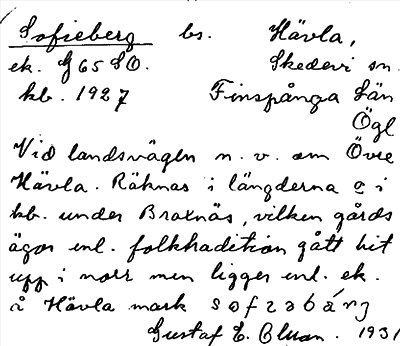 Sofieberg bs. Hävla,
ek. G 65 SO. Skedevi sn.
kb. 1927 Finspånga Län
Ögl
Vid landsvägen n. v. om Övre
Hävla. Räknas i längderna o i
kb. under Braxnäs, vilken gårds
ägor enl. folktradition gått hit
upp i norr men ligger enl. ek.
å Hävla mark sofzabárg
Gustaf E. 1931